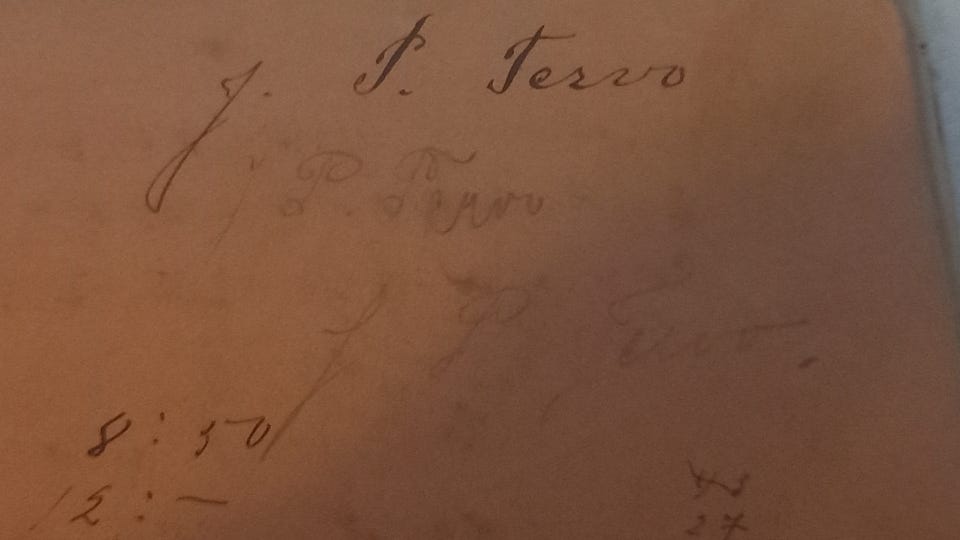 J. P. Tervo
J P. Tervo
J P Tervo.
8:50
12:—
43
27